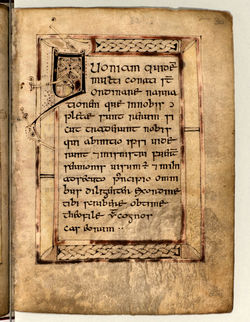 Quoniam quidē
multi conati sī
ordinare narra
tionem que innobis ɔ
pletae sunt rerum si
cut nobis
qui abinitio ipsi uide
runt & ministri
sermonis uisum ē & mihi
principio omni
bus diligenter exordine
tibi scribere obtime
theofile cognos
cas